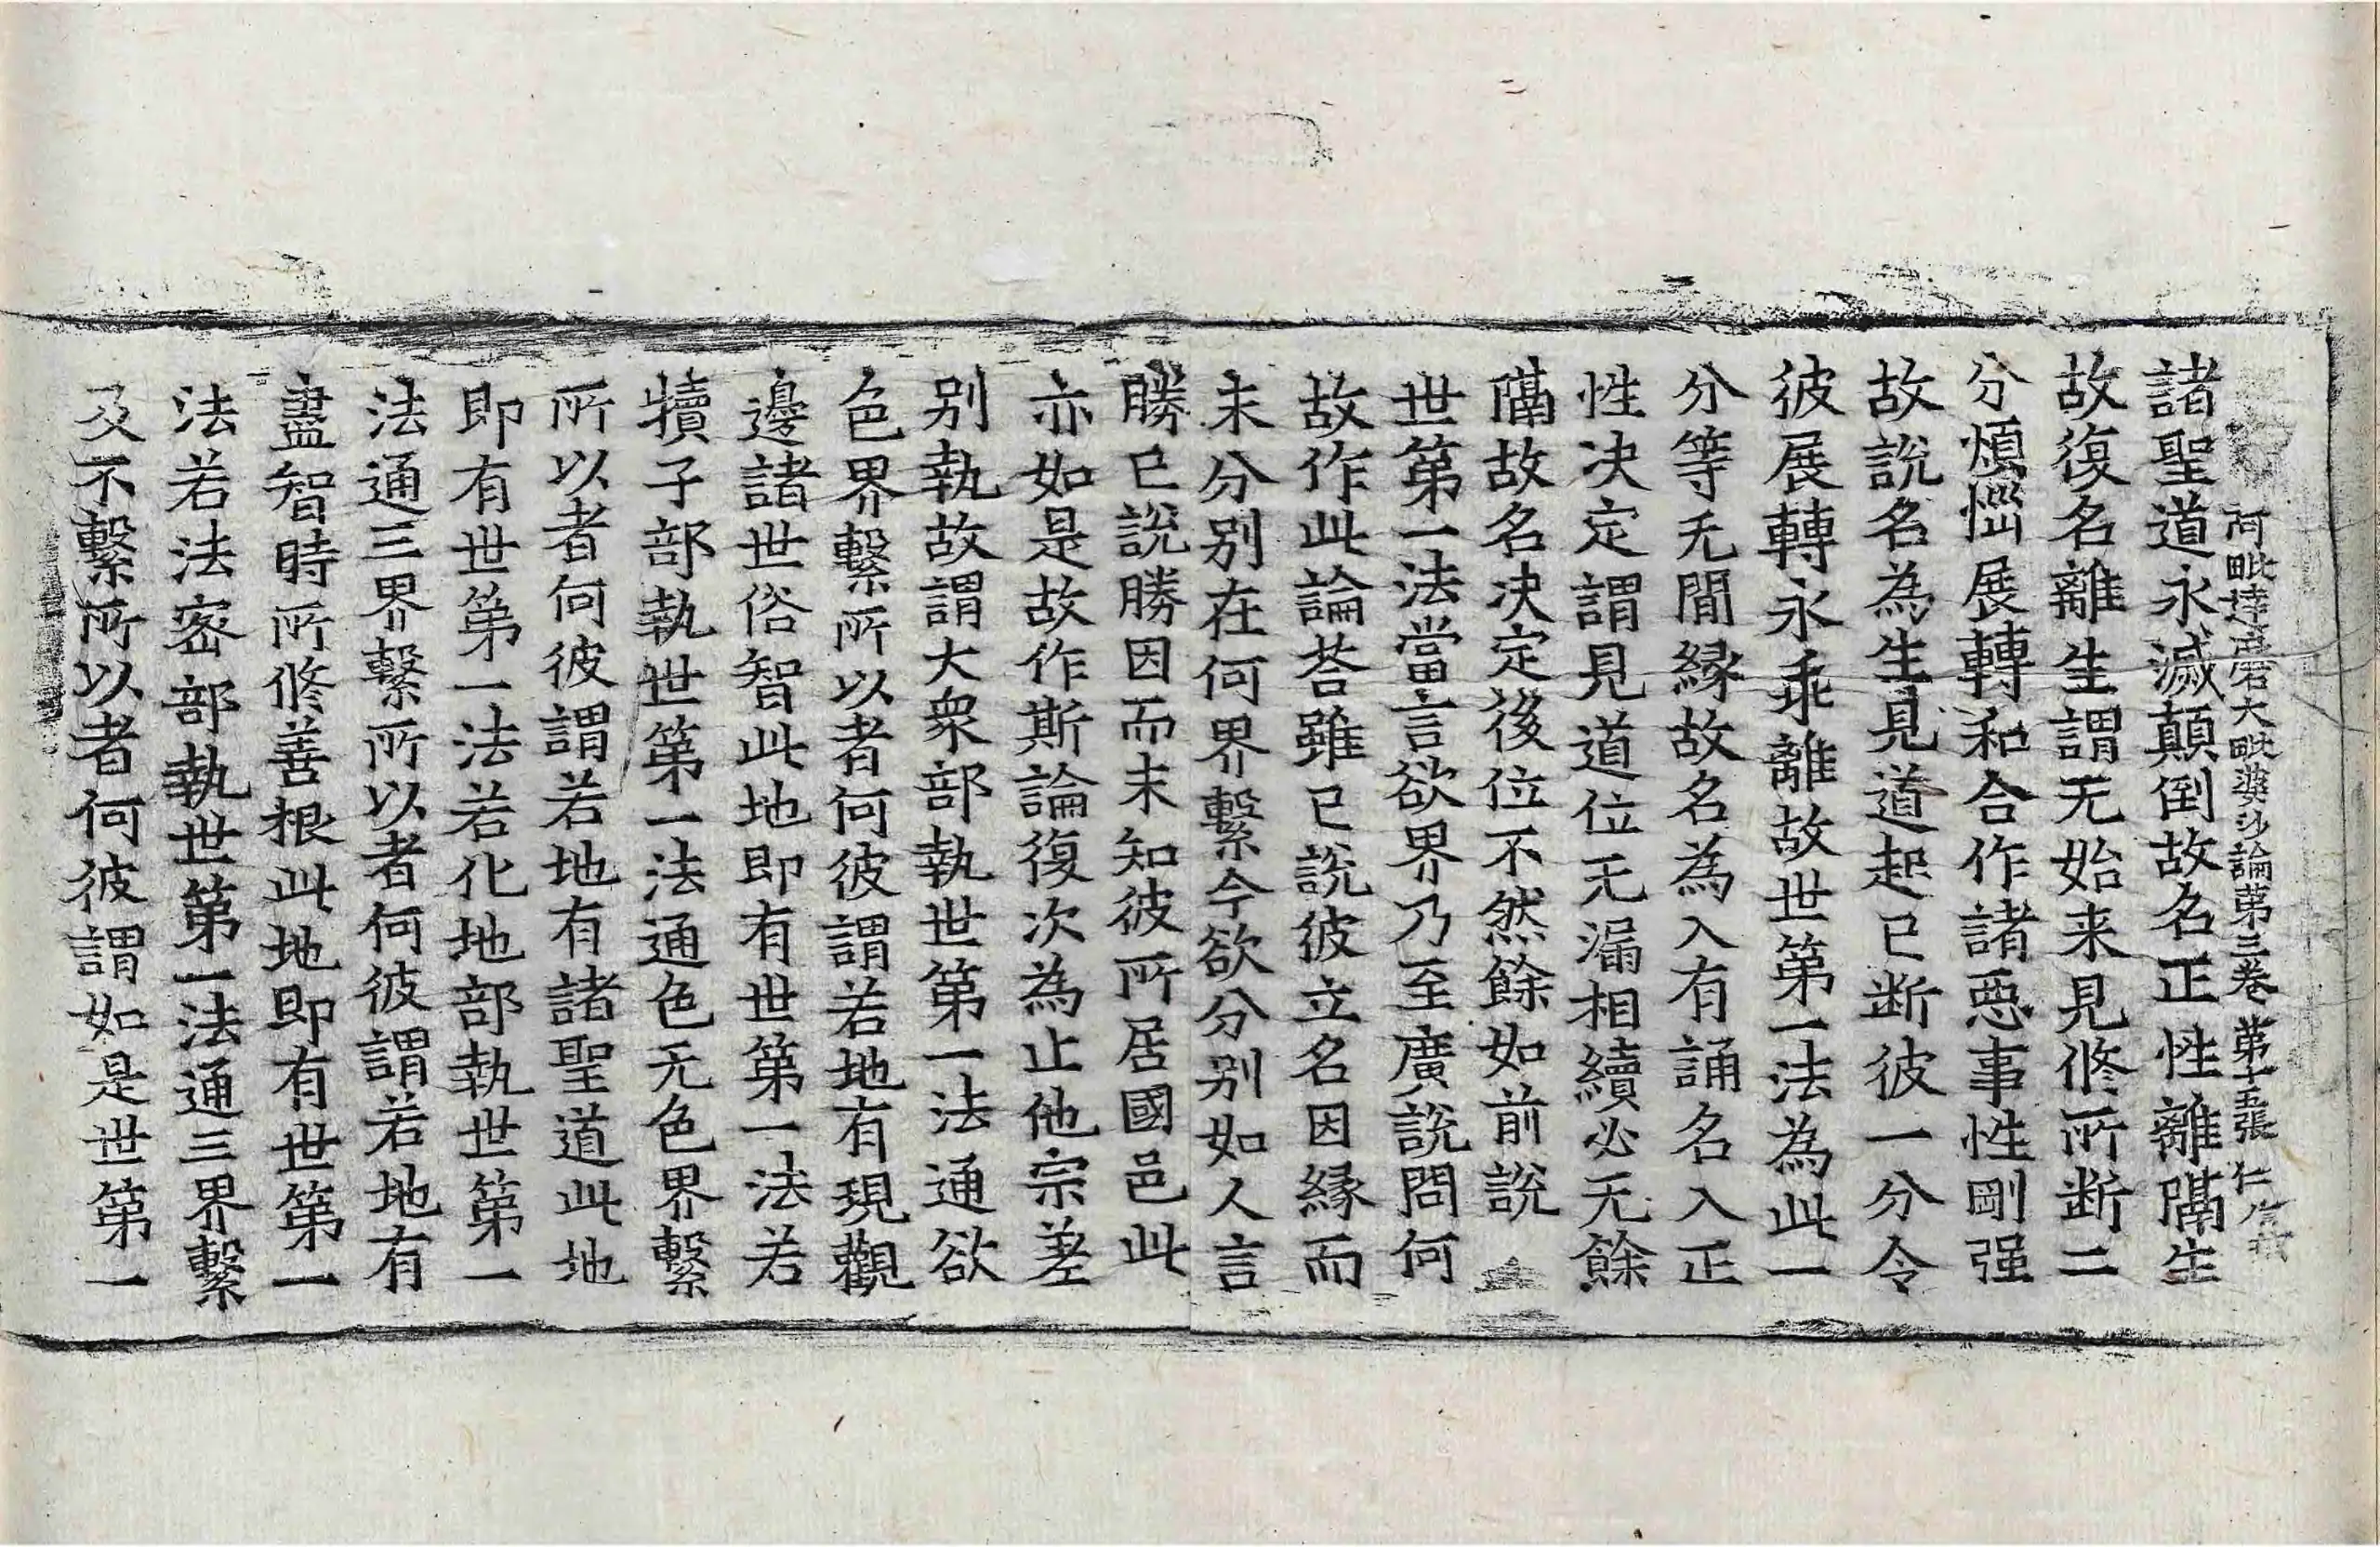 阿毗達磨大毗婆沙論第三卷 第十五張 仁
諸聖道永滅顛倒故名正性離隔生
故復名離生謂无始来見修所断二
分煩惱展轉和合作諸惡事性剛强
故說名為生見道起已断彼一分令
彼展轉永乖離故世第一法為此一
分等无閒緣故名為入有誦名入正
性决定謂見道位无漏相續必无餘
隔故名决定後位不然餘如前說
世第一法當言欲界乃至廣說問何
故作此論荅雖已說彼立名因緣而
未分別在何界繫今欲分別如人言
勝已說勝因而未知彼所居國邑此
亦如是故作斯論復次為止他宗差
別執故謂大衆部執世第一法通欲
色界繫所以者何彼謂若地有現觀
邊諸世俗智此地即有世第一法若
犢子部執世第一法通色无色界繫
所以者何彼謂若地有諸聖道此地
即有世第一法若化地部執世第一
法通三界繫所以者何彼謂若地有
盡智時所修善根此地即有世第一
法若法密部執世第一法通三界繫
及不繫所以者何彼謂如是世第一